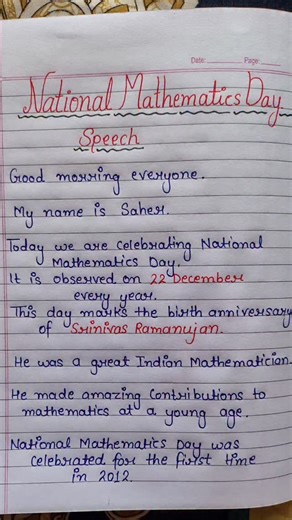 Date: Page:
National Mathematics Day
Speech
Good morning everyone.
My name is Saher.
Today we are celebrating National
Mathematics Day.
It is observed on 22 December
every year.
This day marks the birth anniversary
of Srinivas Ramanujan.
He was a great Indian Mathematician.
He made amazing contributions to
mathematics at a young age.
National Mathematics Day was
celebrated for the first time
in 2012.